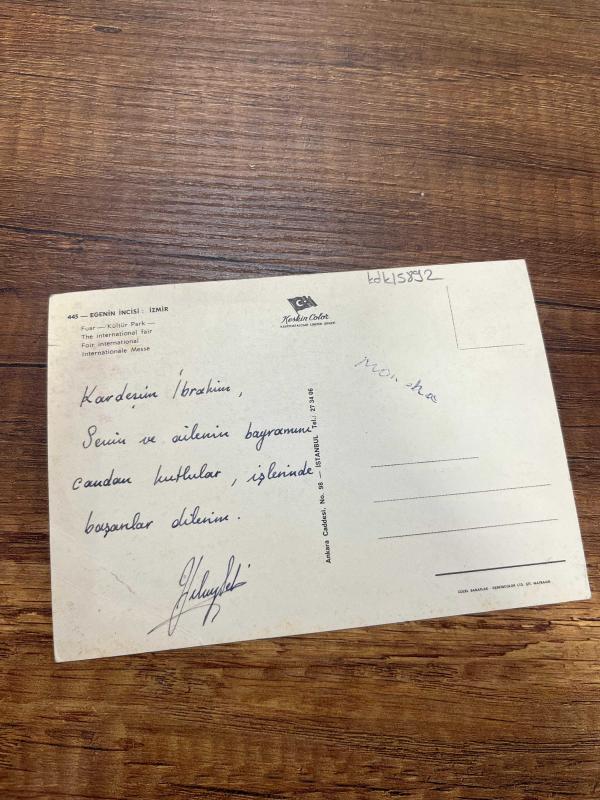 kdk15892
445 — EGENİN İNCİSİ : İZMİR
Fuar — Kültür Park —
The international fair
Foir international
Internationale Messe
Keskin Color
Kardeşim İbrahim,
Senin ve ailenin bayramını
candan kutlular, işlerinde
başarılar dilerim.
Ankara Caddesi, No. 98 — İSTANBUL Tel.: 27 34 06